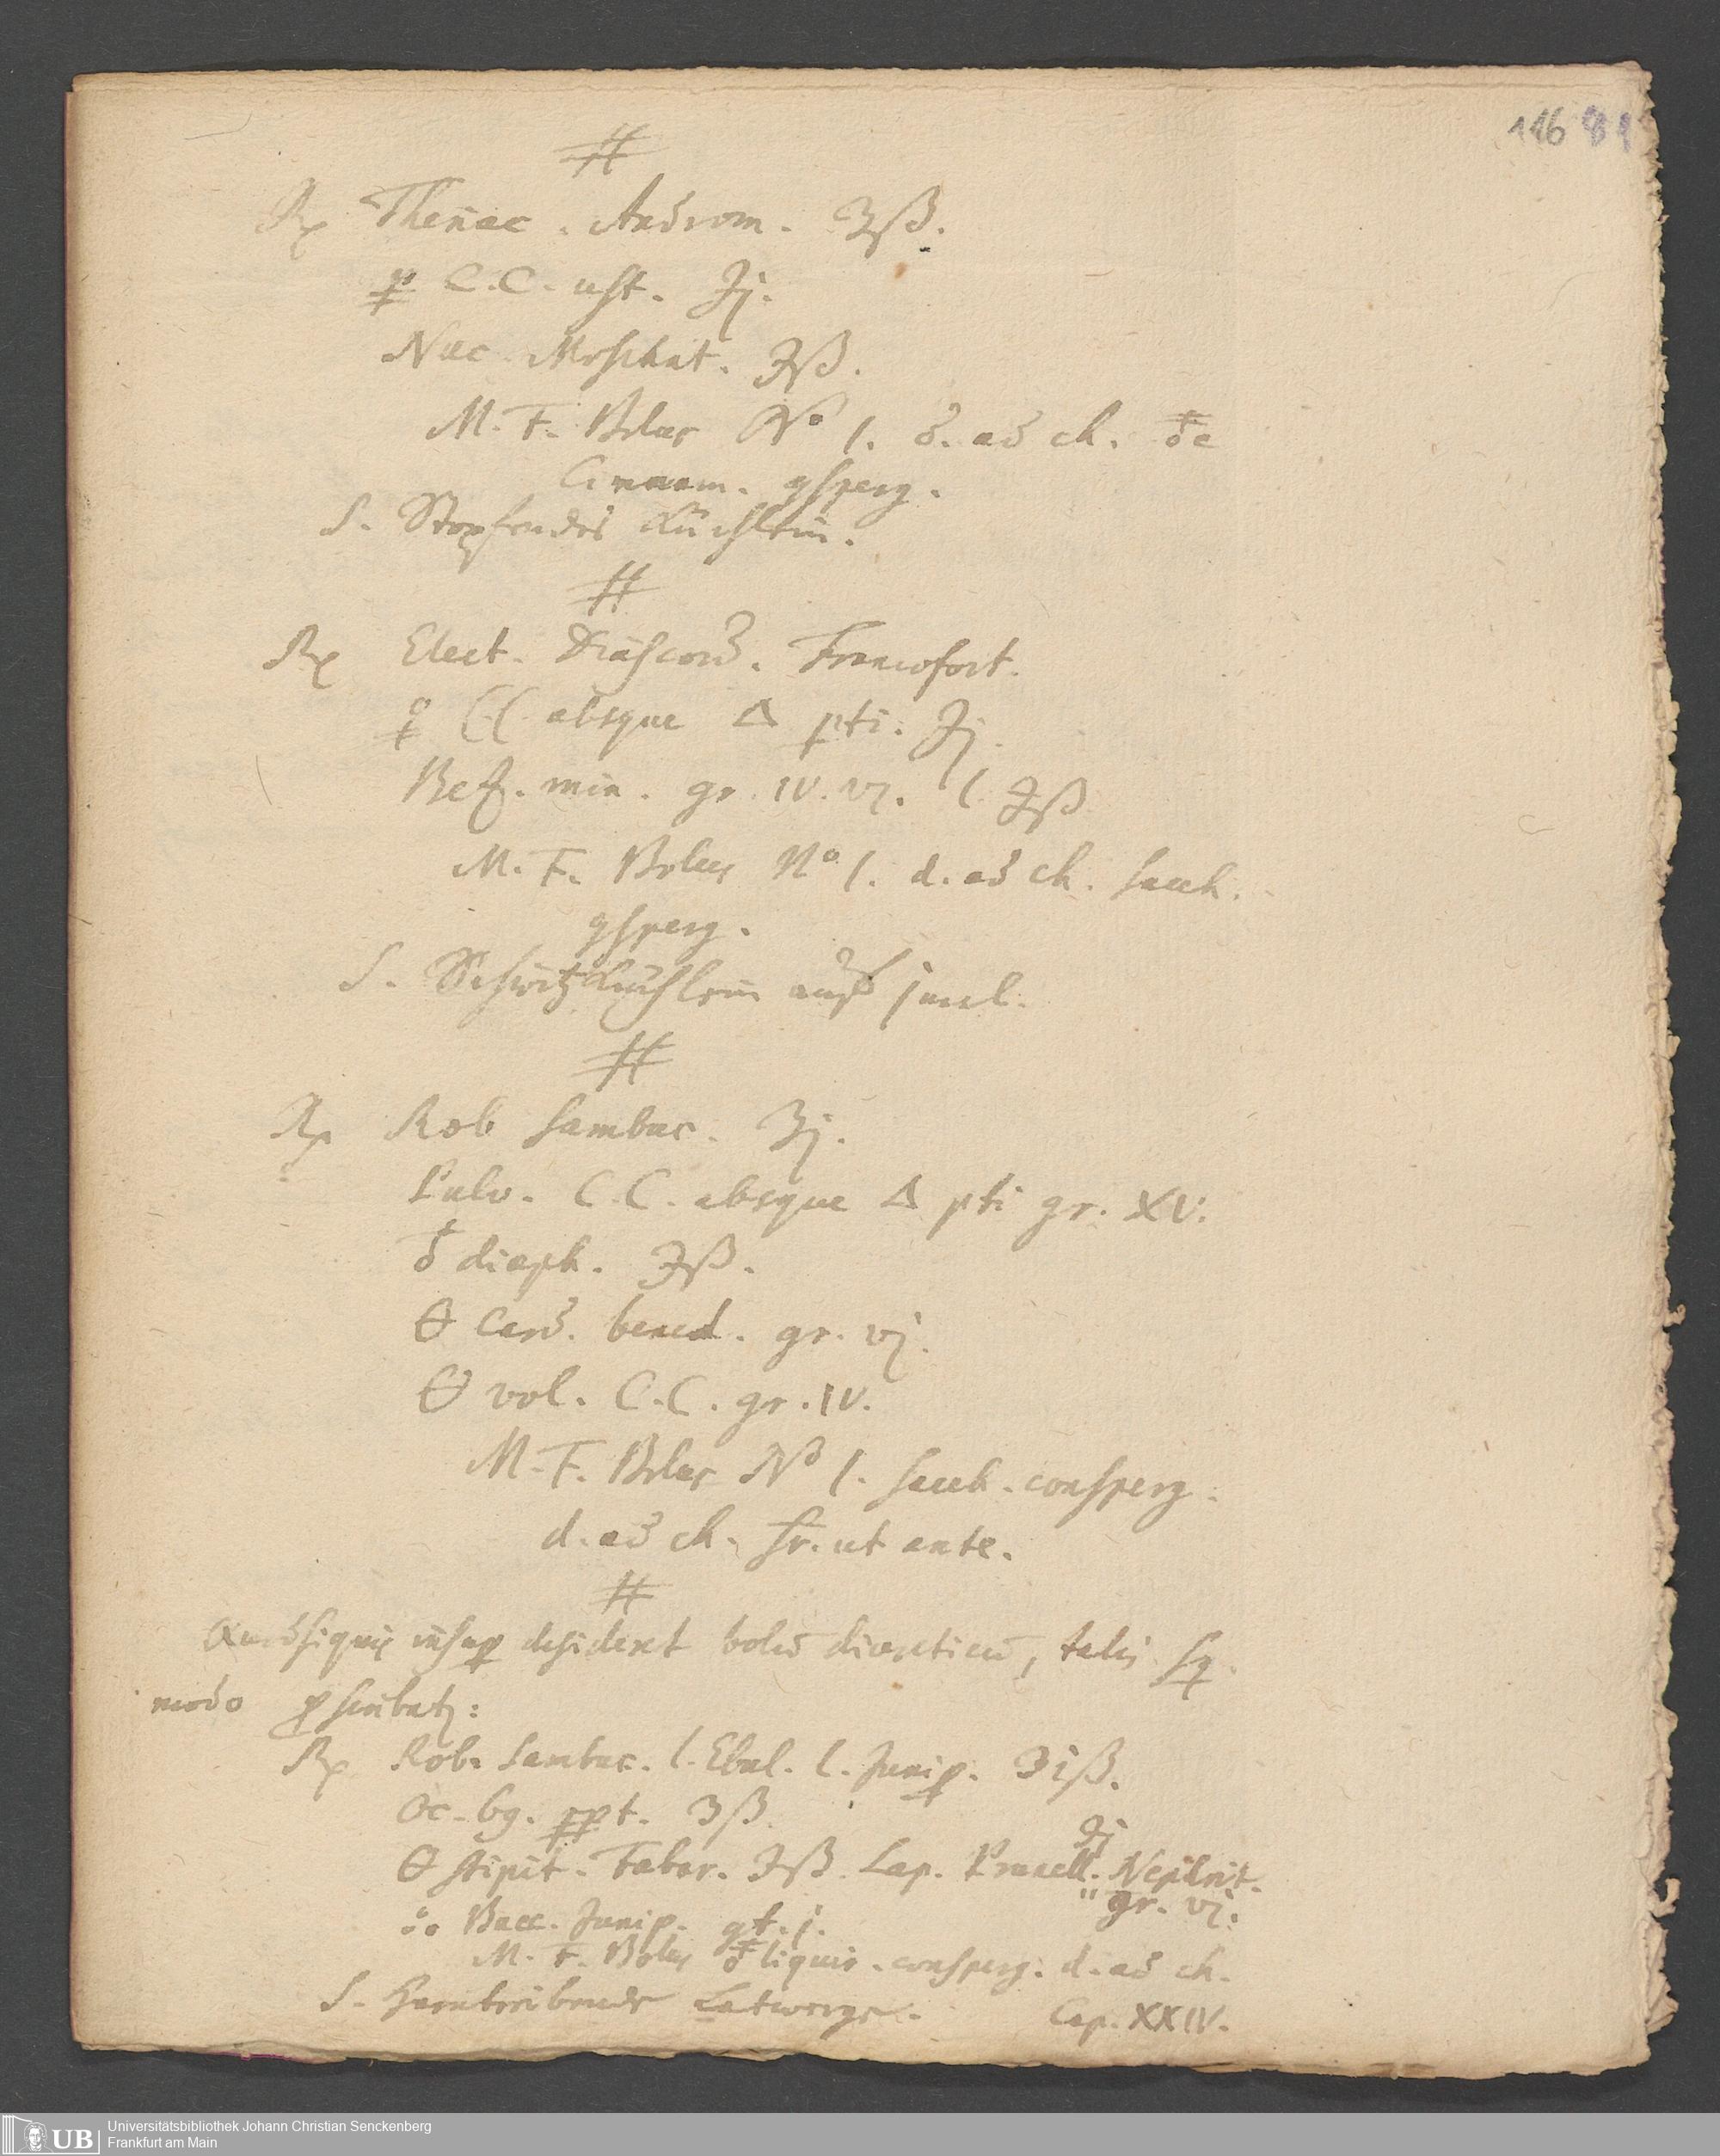 116 81
#
℞ Theriac. Androm. ʒß.
p C.C. ust. ℈j.
Nuc. Moschat. ℈ß.
M. F. Bolus No 1. d. ad ch.
Cinnam. 9sperg.
S. Stopfendes Küchlein.
#
℞ Elect. Diascord. Francofort.
CC absque 🜂 pti. ℈j.
Bez. min. gr. IV. vj. l. ℈ß
M. F. Bolus No 1. d. ad ch. Sacch.
9sperg.
S. Schwitzküchlein auf 1 mal.
#
℞ Rob Sambuc. ʒj.
Pulv. C.C. absque 🜂 pti gr. XV.
♁ diaph. ℈ß.
🜔 Card. bened. gr. vj.
🜔 vol. C.C. gr. IV.
M. F. Bolus No 1. Sacch. consperg.
d. ad ch. Sr. ut ante.
#
Quodsiquis insup desideret bolū diureticū, talis sq.
modo pscribatʒ:
℞ Rob. Sambuc. l. Ebul. l. Junip. ʒiß.
Oc. 69. ppt. ʒß.
℈j
🜔 stipit. Fabar. ℈ß. Lap. Prunell. Nephrit.
" gr. vj.
Bacc. Junip. gt. j.
M. F. Bolus liquir. consperg. d. ad ch.
S. Harntreibende Latwerge.
Cap. XXIV.
UB Universitätsbibliothek Johann Christian Senckenberg
Frankfurt am Main